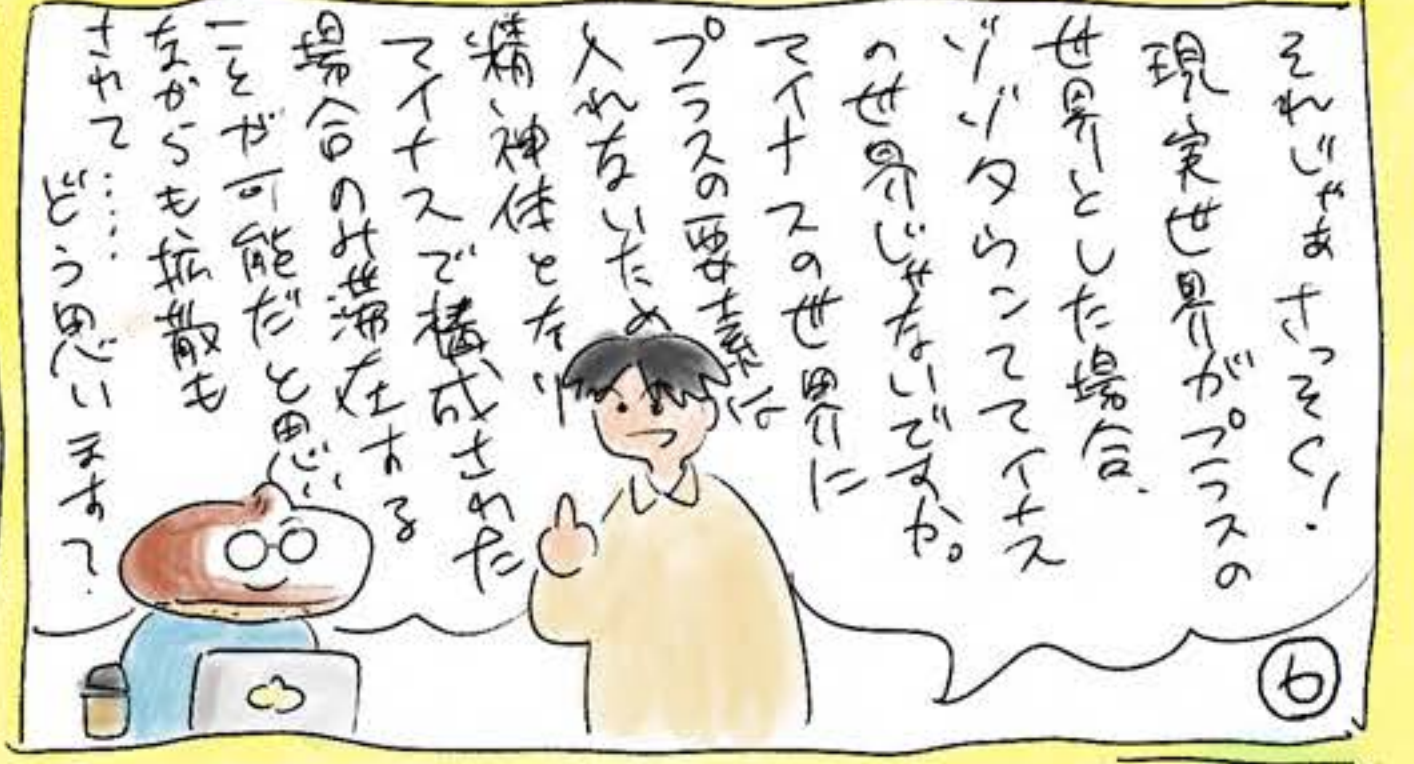 それじゃあさっそく!
現実世界がプラスの
世界とした場合、
ゾゾタウンてマイナス
の世界じゃないですか。
マイナスの世界に
プラスの要素は
入れないため
精神体となり
マイナスで構成された
場合のみ滞在する
ことが可能だと思い
ながらも、拡散も
されて……
どう思います?
6